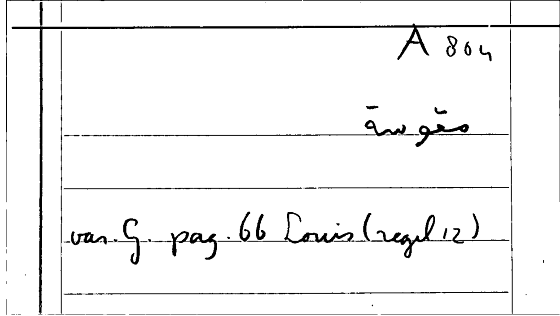 A 804
var. G. pag. 66 Louis (regel 12)